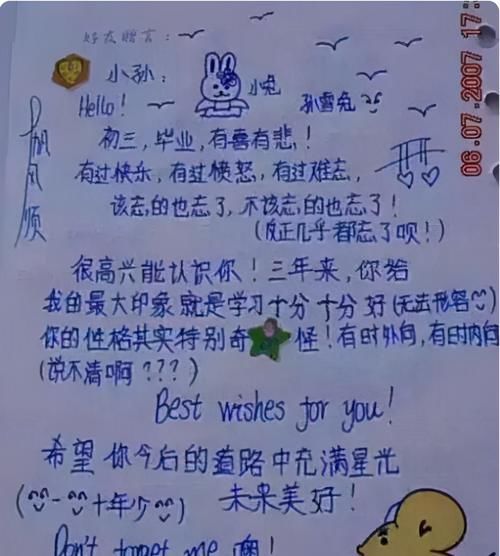 好友赠言:
小孙:
小兔
Hello!
孙雪兔
一帆风顺
初三,毕业,有喜有悲!
有过快乐,有过愤怒,有过难忘,
该忘的也忘了,不该忘的也忘了!
(反正几乎都忘了呗!)
很高兴能认识你!三年来,你给
我的最大印象就是学习十分十分好(无法形容)
你的性格其实特别奇怪!有时外向,有时内向
(说不清啊???)
Best wishes for you!
希望你今后的道路中充满星光
(十年少) 未来美好!
Don't forget me 噢!
06.07.2007 17: